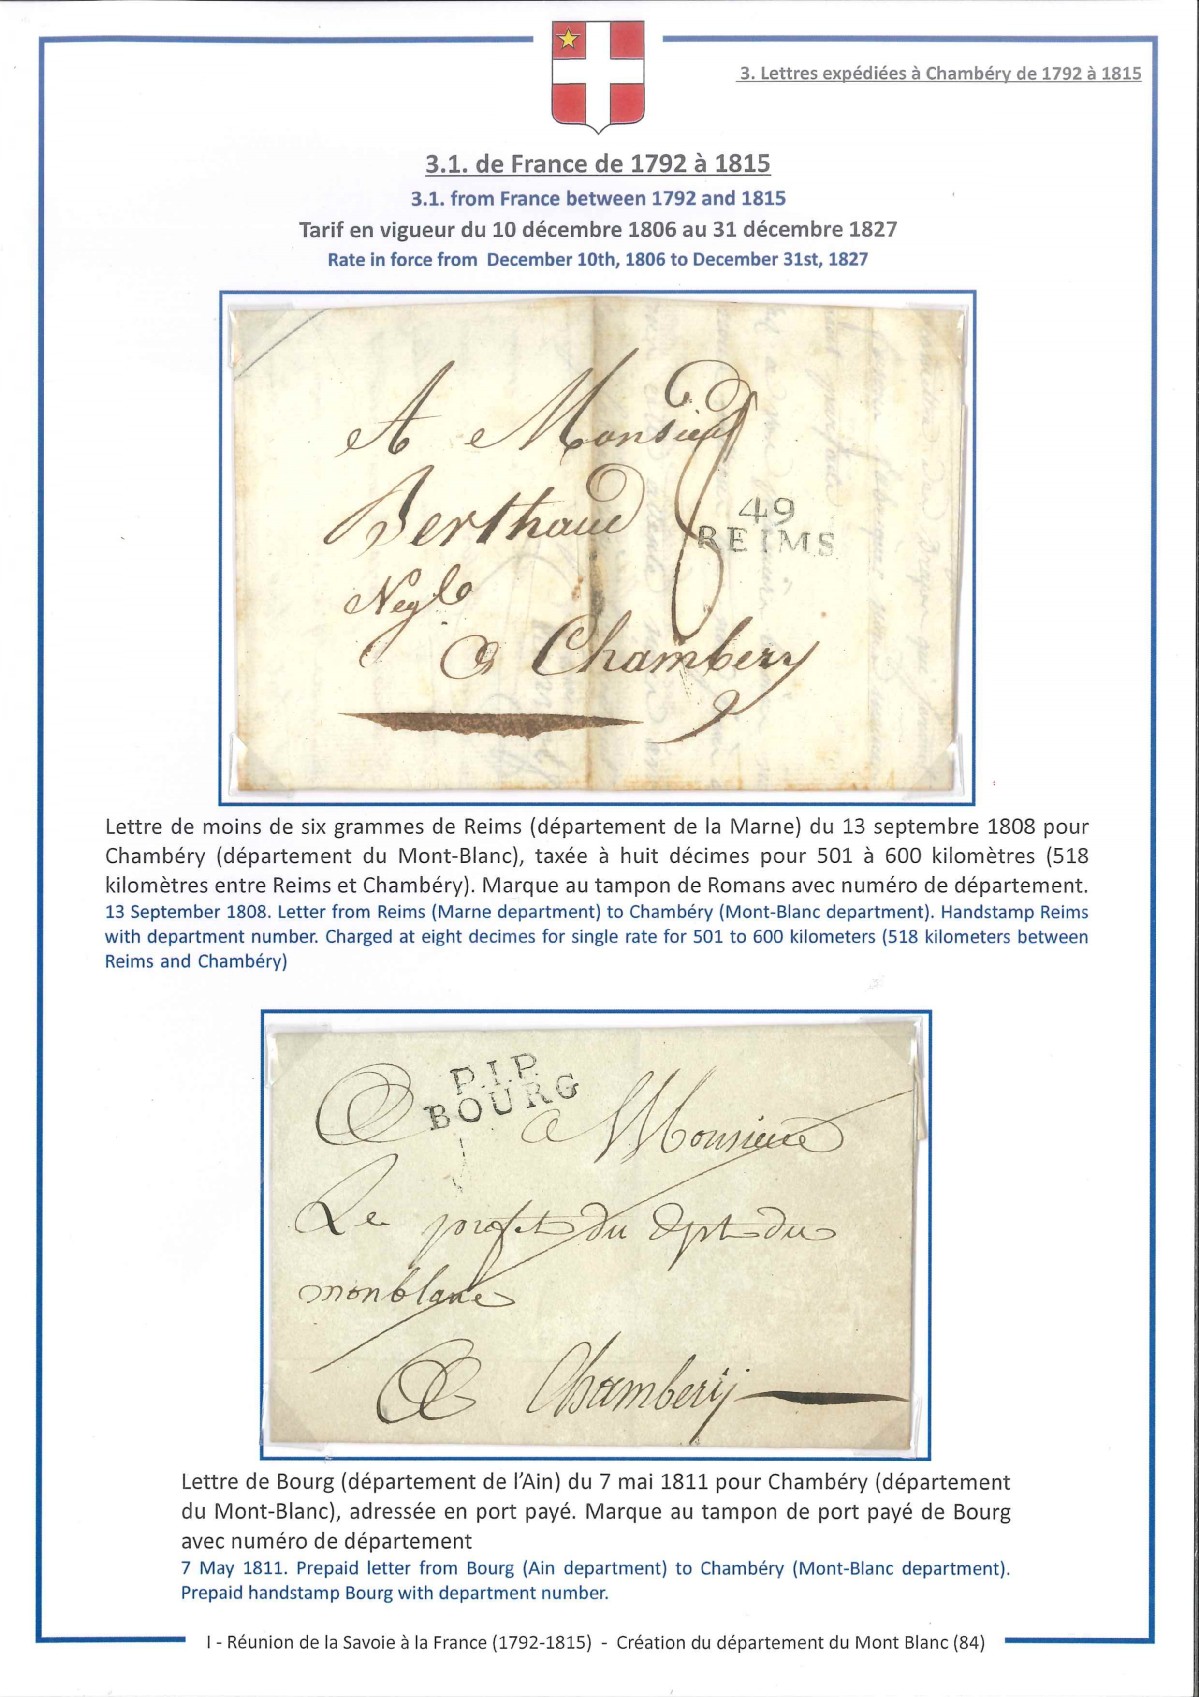 3. Lettres expédiées à Chambéry de 1792 à 1815
3.1. de France de 1792 à 1815
3.1. from France between 1792 and 1815
Tarif en vigueur du 10 décembre 1806 au 31 décembre 1827
Rate in force from December 10th, 1806 to December 31st, 1827
A Monsieur
Berthaud
49
REIMS
Negt
a Chambery
Lettre de moins de six grammes de Reims (département de la Marne) du 13 septembre 1808 pour
Chambéry (département du Mont-Blanc), taxée à huit décimes pour 501 à 600 kilomètres (518
kilomètres entre Reims et Chambéry). Marque au tampon de Romans avec numéro de département.
13 September 1808. Letter from Reims (Marne department) to Chambéry (Mont-Blanc department). Handstamp Reims
with department number. Charged at eight decimes for single rate for 501 to 600 kilometers (518 kilometers between
Reims and Chambéry)
P.1.P.
BOURG
a Monsieur
Le prefet du dpt du
monblanc
a Chambery
Lettre de Bourg (département de l'Ain) du 7 mai 1811 pour Chambéry (département
du Mont-Blanc), adressée en port payé. Marque au tampon de port payé de Bourg
avec numéro de département
7 May 1811. Prepaid letter from Bourg (Ain department) to Chambéry (Mont-Blanc department).
Prepaid handstamp Bourg with department number.
I - Réunion de la Savoie à la France (1792-1815) - Création du département du Mont Blanc (84)